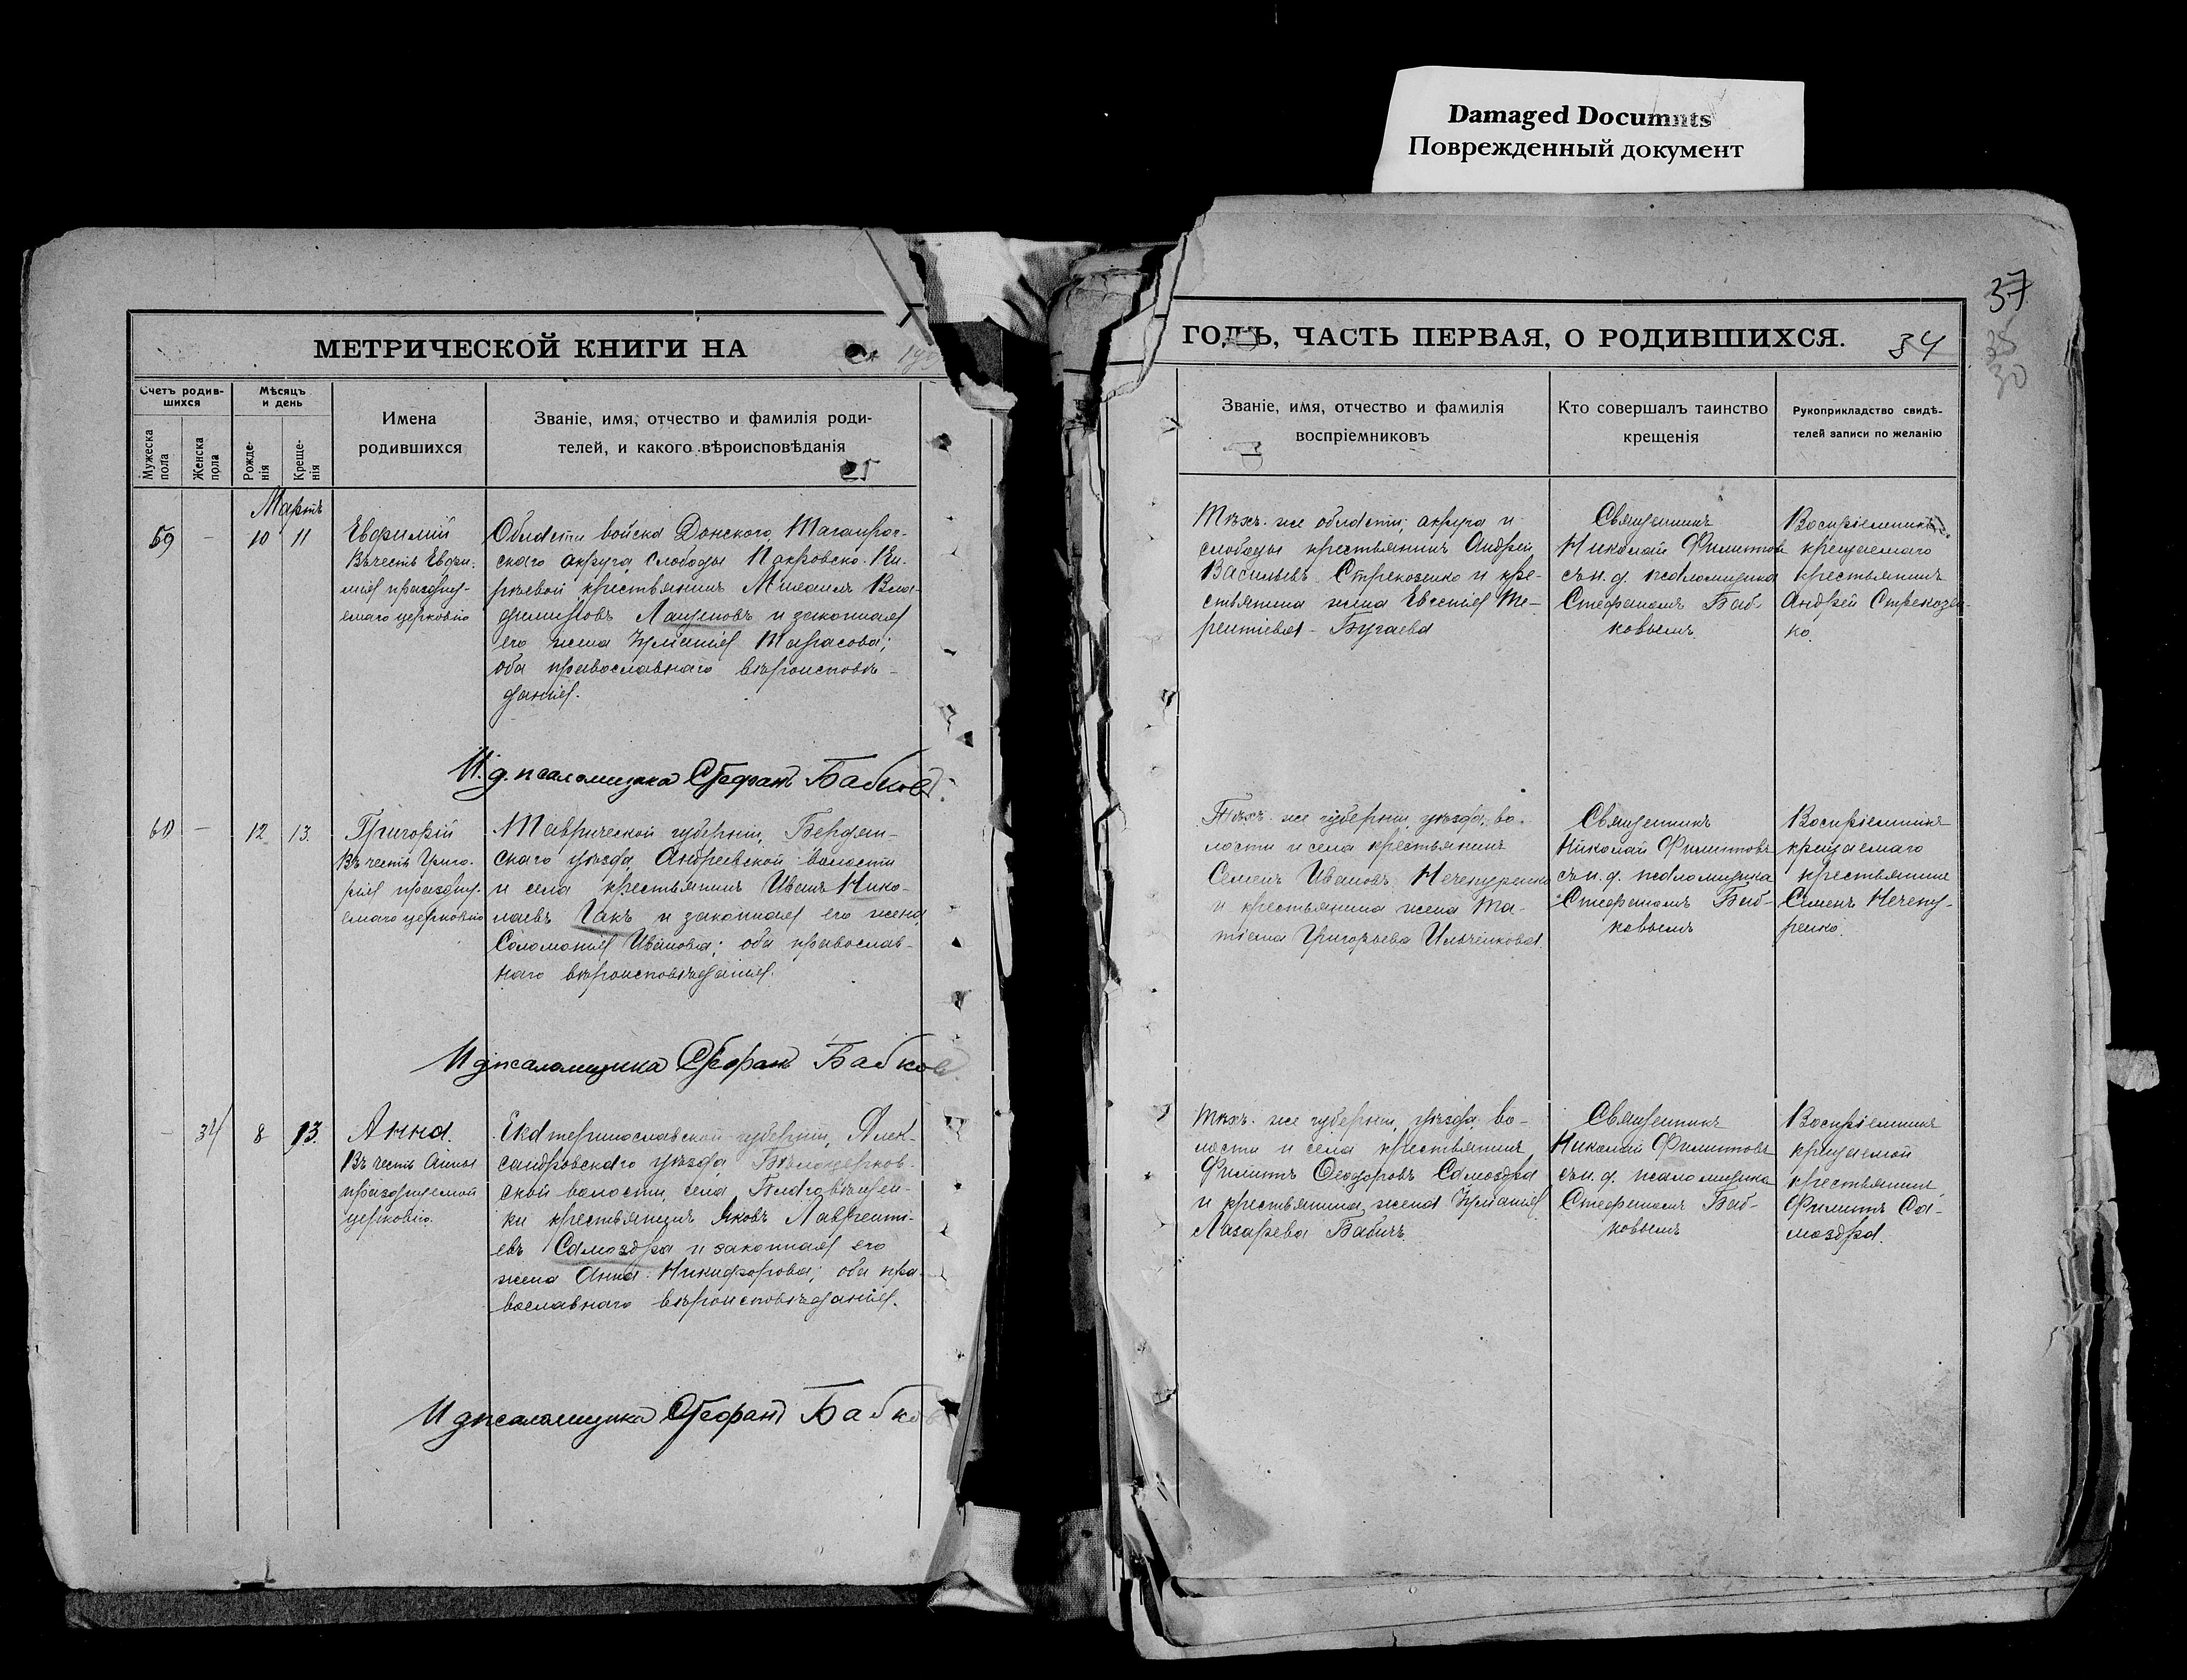 Damaged Documents
Поврежденный документ
37
35
30
МЕТРИЧЕСКОЙ КНИГИ НА
ГОДЪ, ЧАСТЬ ПЕРВАЯ, О РОДИВШИХСЯ.
34
Счетъ родив-
шихся
Мѣсяцъ
и день
Мужеска
пола
Женска
пола
Рожде-
нія
Креще-
нія
Имена
родившихся
Званіе, имя, отчество и фамилія роди-
телей, и какого вѣроисповѣданія
25
Званіе, имя, отчество и фамилія
воспріемниковъ
Кто совершалъ таинство
крещенія
Рукоприкладство свидѣ-
телей записи по желанію
Мартъ
59
-
10
11
Евфимій
Въ честь Евфи-
мія празdну-
емаго церковію
Области войска Донского, Таганрог-
скаго округа слободы Покровско-Ки-
рѣевой крестьянинъ Михаилъ Вла-
диміровъ Лащеновъ и законная
его жена Іуліанія Тарасова;
оба православнаго вѣроисповѣ-
данія.
Тѣхъ-же области, округа и
слободы крестьянинъ Андрей
Васильевъ Стрекозенко и кре-
стьянина жена Евгенія Те-
рентіевая - Бугаева
Священникъ
Николай Филипповъ
съ и. д. псаломщика
Стефаномъ Баб-
ковымъ.
Воспріемникъ
крещаемаго
крестьянинъ
Андрей Стрекозен-
ко.
И. д. псаломщика Стефанъ Бабковъ.
60
-
12
13.
Григорій
Въ честь Григо-
рія праздну-
емаго церковію
Таврической губерніи, Бердян-
скаго уѣзда, Андреевской волости
и села крестьянинъ Иванъ Нико-
лаевъ Гакъ и законная его жена
Соломонія Иванова; оба православ-
наго вѣроисповѣданія.
Тѣхъ-же губерніи, уѣзда, во-
лости и села крестьянинъ
Семенъ Ивановъ Нечепуренко
и крестьянина жена Та-
тіана Григорьева Ильченковая.
Священникъ
Николай Филипповъ
съ и. д. псаломщика
Стефаномъ Баб-
ковымъ
Воспріемникъ
крещаемаго
крестьянинъ
Семенъ Нечепу-
ренко.
И д псаломщика Стефанъ Бабков
-
34
8
13.
Анна.
Въ честь Анны
празднуемой
церковію.
Екатеринославской губерніи, Алек-
сандровскаго уѣзда Бѣлоцерков-
ской волости, села Благовѣщен-
ки крестьянинъ Яковъ Лаврентi-
евъ Самоздра и законная его
жена Анна Никифорова; оба пра-
вославнаго вѣроисповѣданія.
Тѣхъ-же губерніи, уѣзда, во-
лости и села крестьянинъ
Филиппъ Ѳеодоровъ Самоздра
и крестьянина жена Іуліанія
Лазарева Бабичъ.
Священникъ
Николай Филипповъ
съ и. д. псаломщика
Стефаномъ Баб-
ковымъ
Воспріемникъ
крещаемой
крестьянинъ
Филиппъ Са-
моздра.
И д псаломщика Стефанъ Бабков